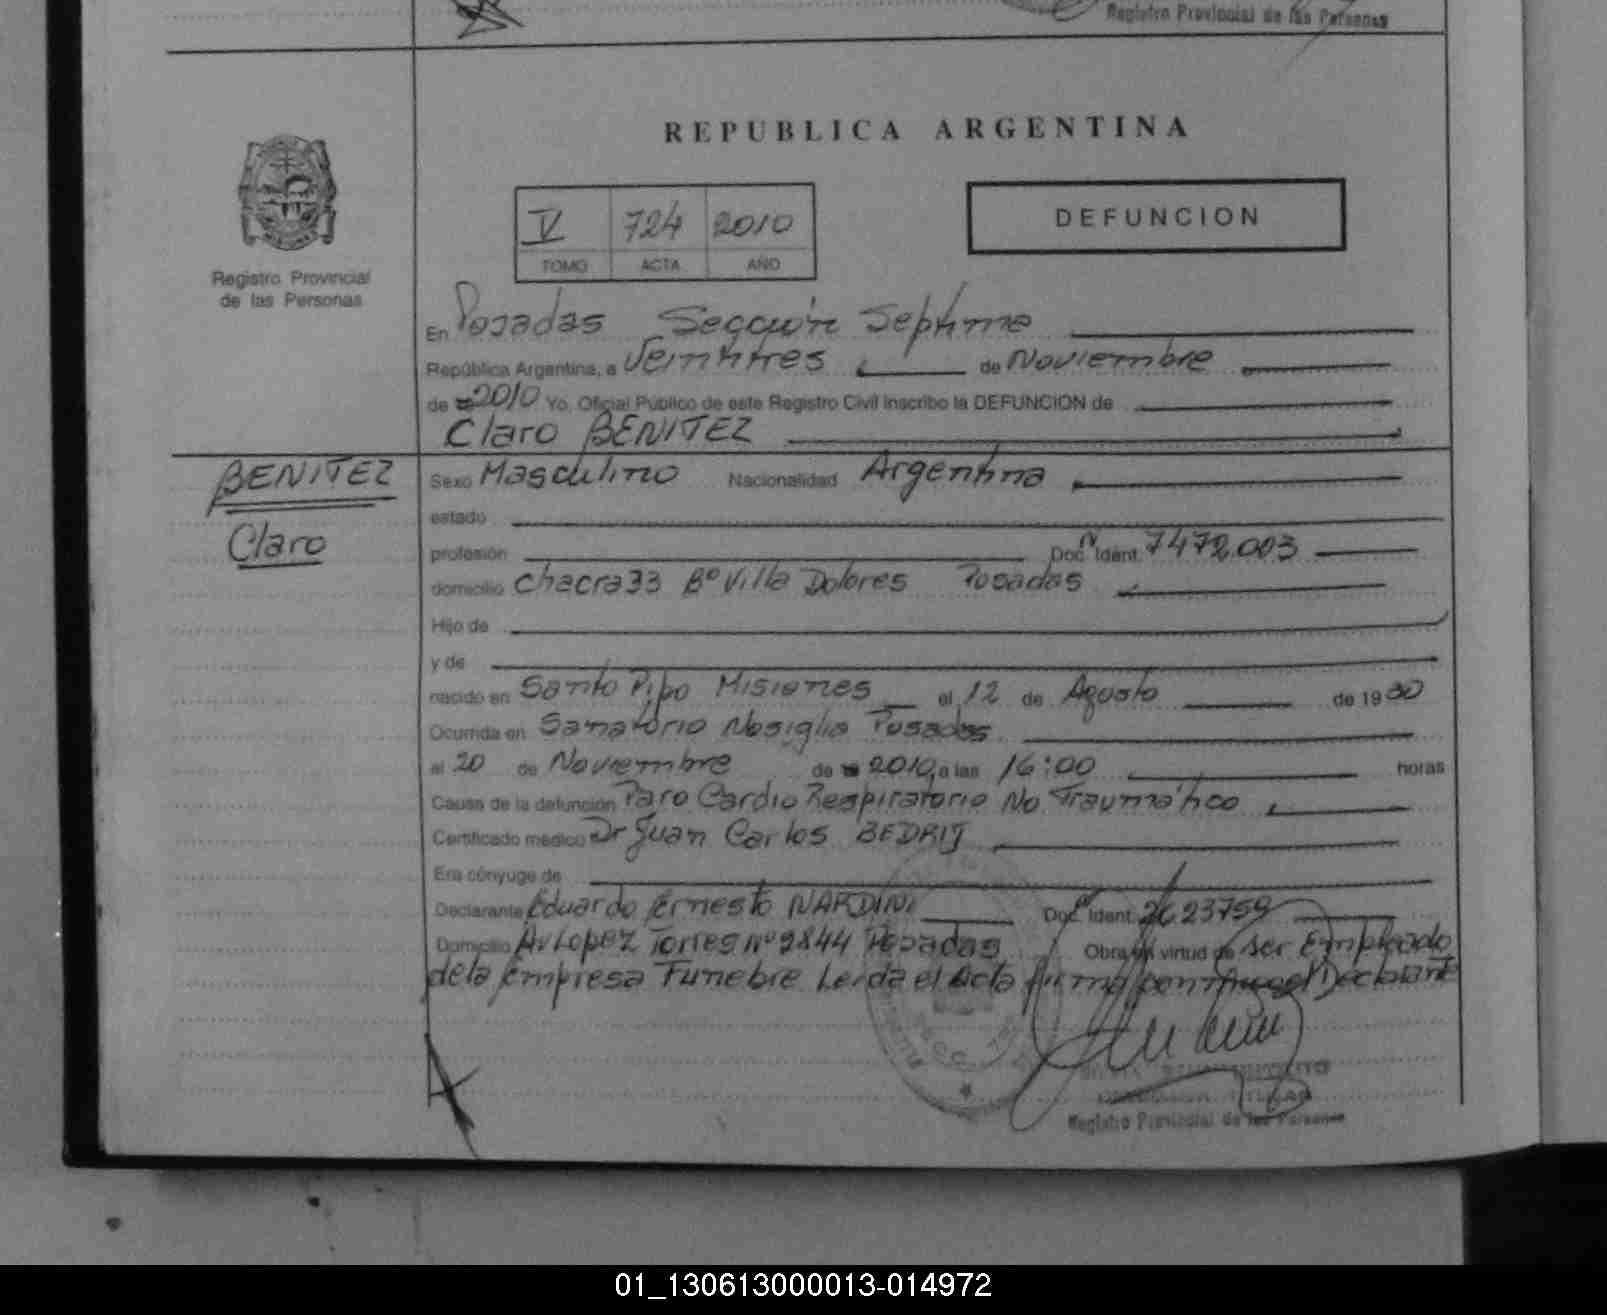 Registro Provincial de las Personas
REPUBLICA ARGENTINA
V 724 2010
TOMO ACTA AÑO
DEFUNCION
Registro Provincial
de las Personas
En Posadas Sección Septima
República Argentina, a Veintitres de Noviembre
de 2010 Yo, Oficial Público de este Registro Civil inscribo la DEFUNCION de
Claro BENITEZ
BENITEZ
Claro
Sexo Masculino Nacionalidad Argentina
estado
profesión Doc. Ident. 7472.003
domicilio Chacra 33 Bº Villa Dolores Posadas
Hijo de
y de
nacido en Santo Pipo Misiones el 12 de Agosto de 19
Ocurrida en Sanatorio Nosiglia Posadas
el 20 de Noviembre de 2010 a las 16:00 horas
Causa de la defunción Paro Cardio Respiratorio No Traumático
Certificado médico Dr Juan Carlos BEDRIJ
Era cónyuge de
Declarante Eduardo Ernesto NARDINI Doc. Ident. 2623759
Domicilio Av Lopez Torres nº 2844 Posadas Obra en virtud de ser Empleado
de la Empresa Funebre Leida el Acta firma Declarante
Registro Provincial de las Personas
01_130613000013-014972